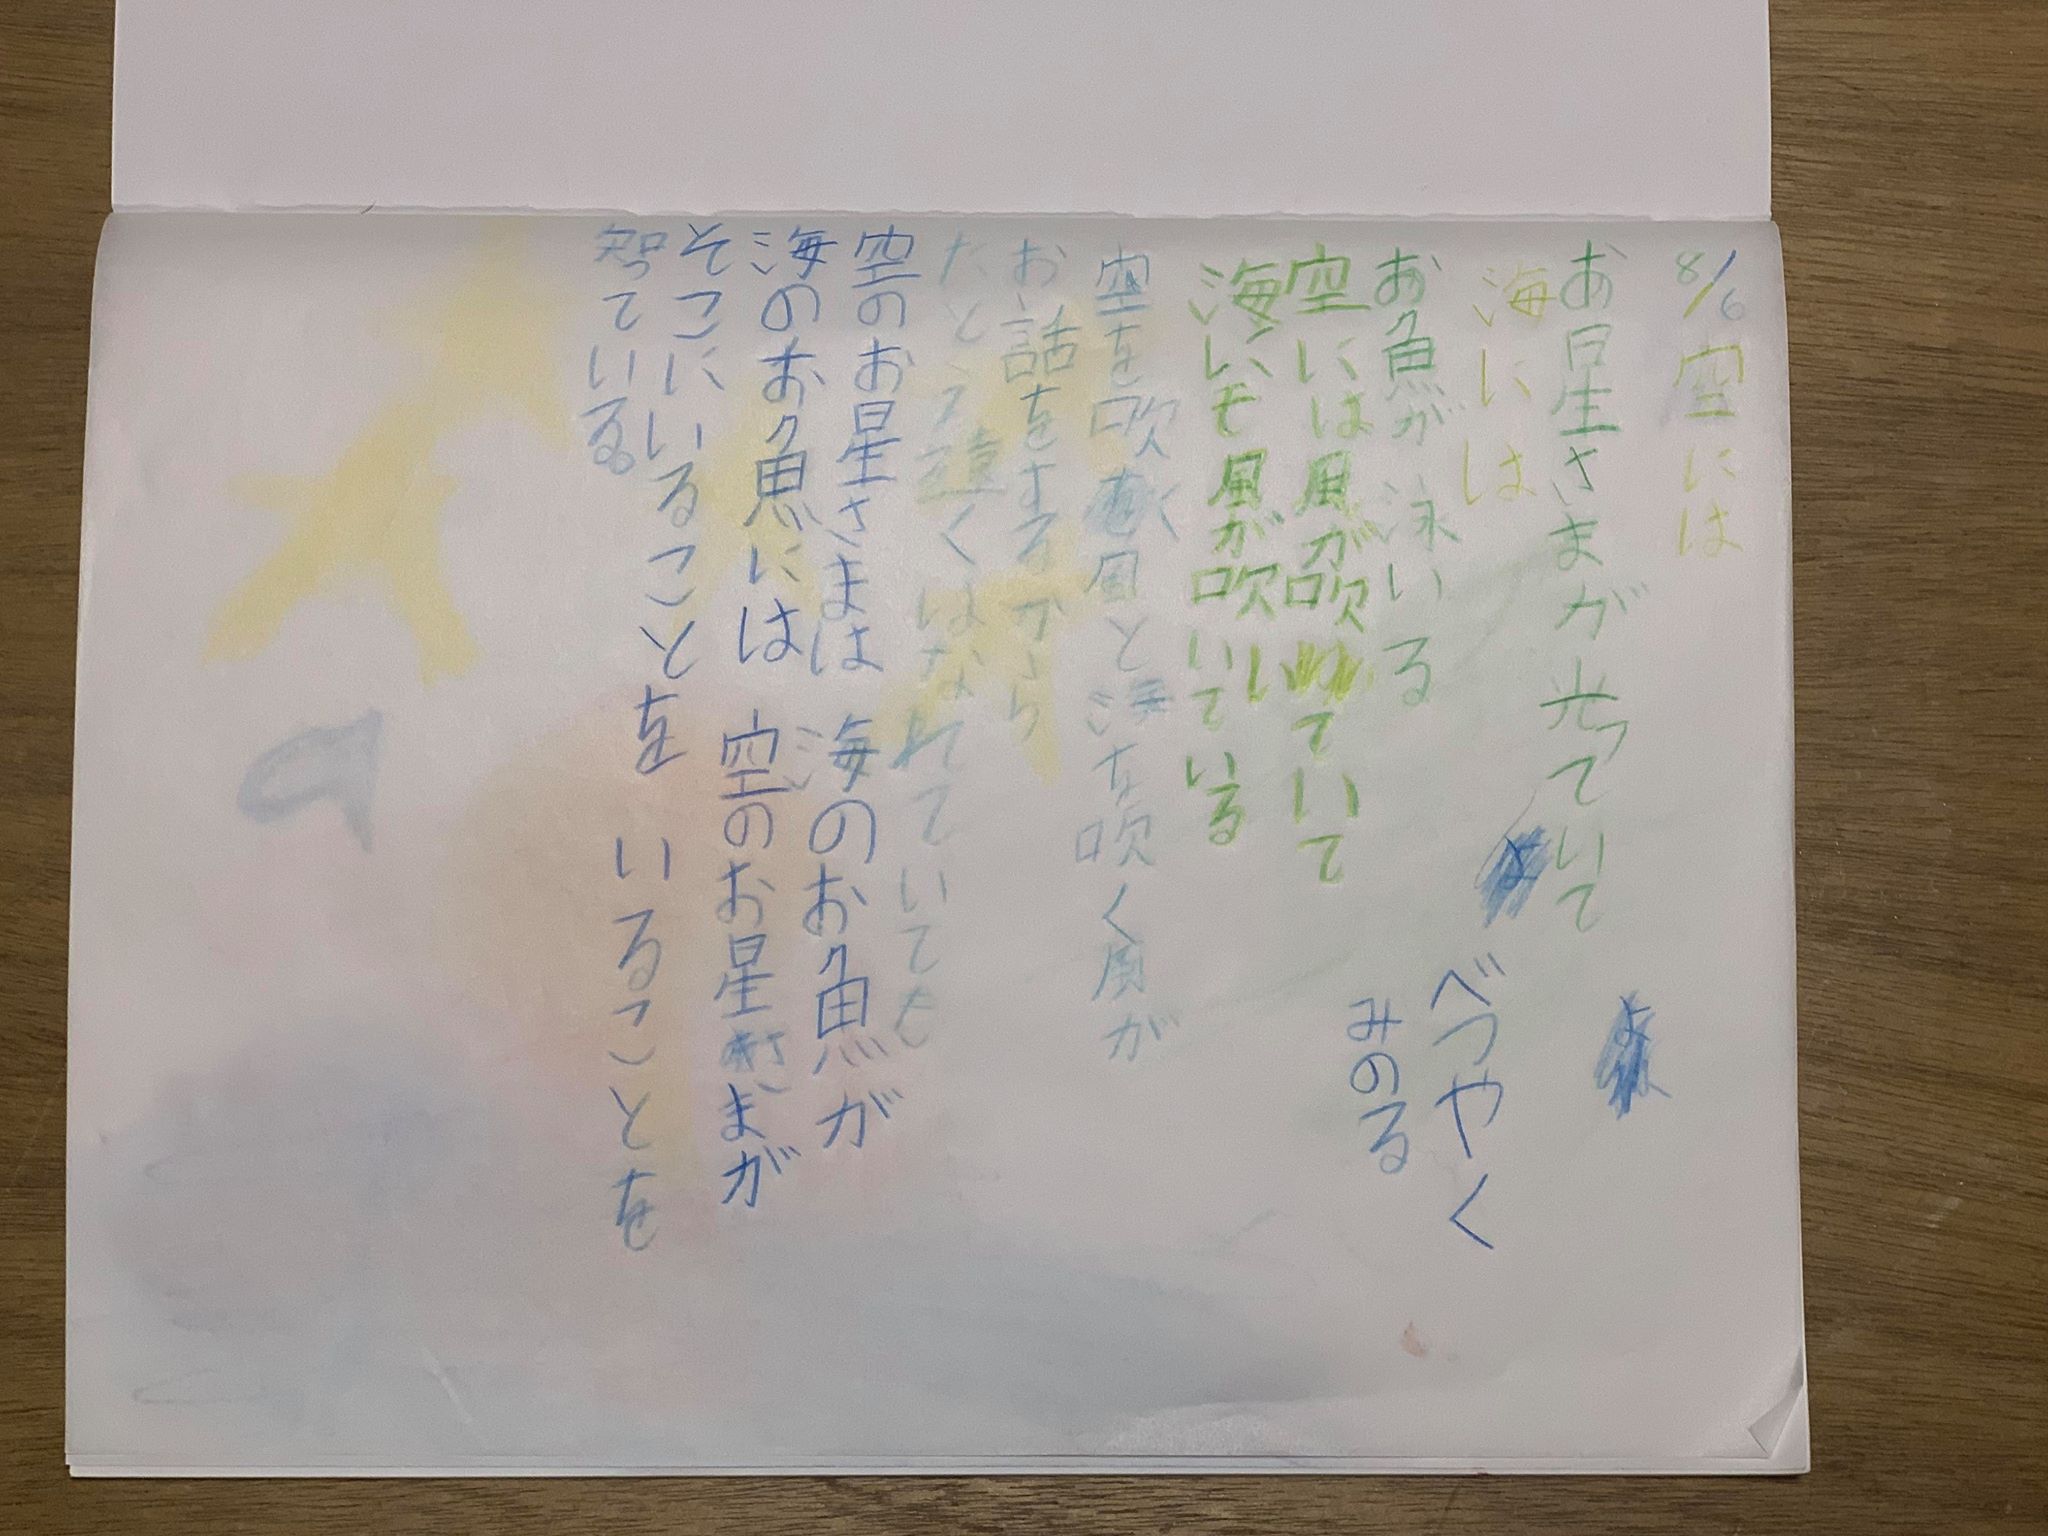 8/6 空には
お星さまが光っていて
海には
お魚が泳いる
べつやく
みのる
空には風が吹いていて
海にも風が吹いている
空を吹く風と海を吹く風が
お話をするから
たとえ遠くはなれていても
空のお星さまは 海のお魚が
海のお魚には 空のお星さまが
そこにいることを いることを
知っている。